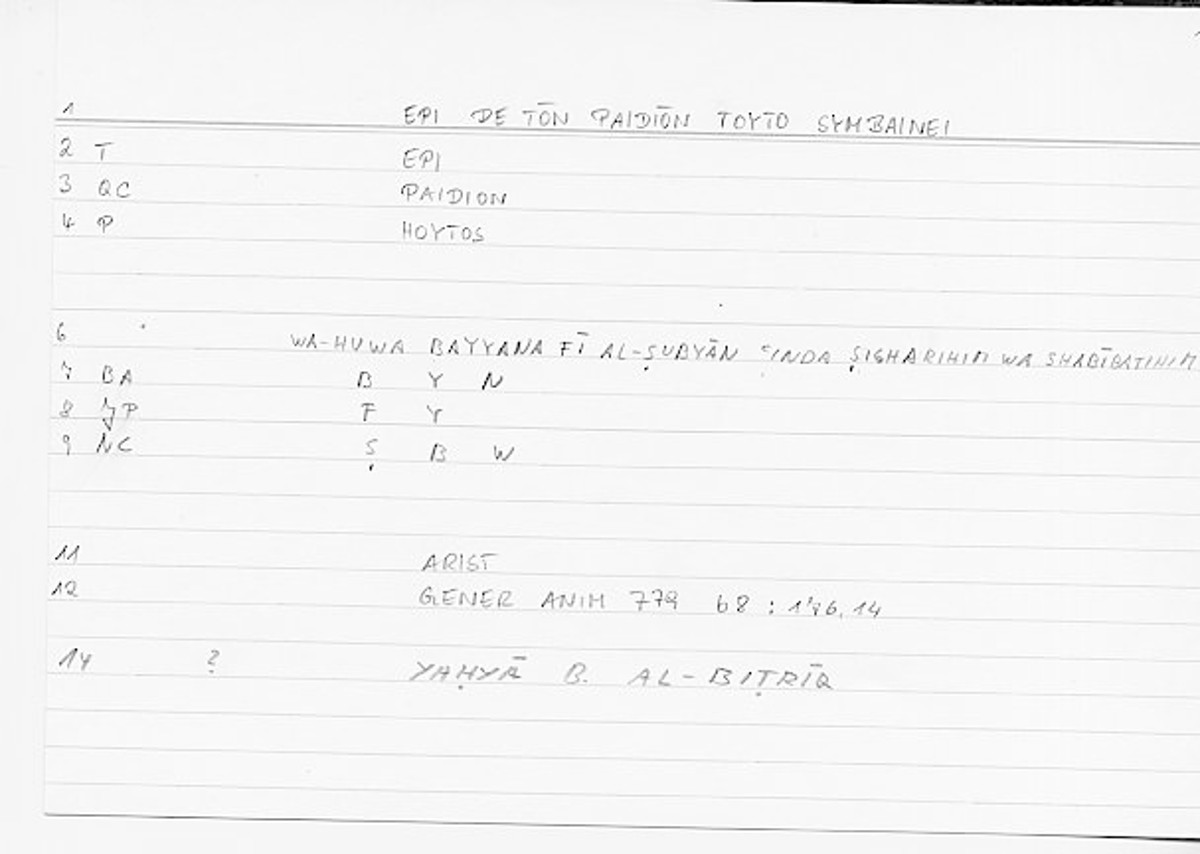 1 EPI DE TŌN PAIDIŌN TOYTO SYMBAINEI
2 T EPI
3 QC PAIDION
4 P HOYTOS
6 WA-HUWA BAYYANA FĪ AL-ṢUBYĀN ʿINDA ṢIGHARIHIM WA SHABĪBATIHIM
7 BA B Y N
8 JP F Y
9 NC Ṣ B W
11 ARIST
12 GENER ANIM 779 68 : 176, 14
14 ? YAḤYĀ B. AL-BIṬRĪQ